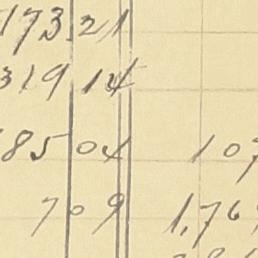 173 21
319 14
85 04 107
7 09 1,769